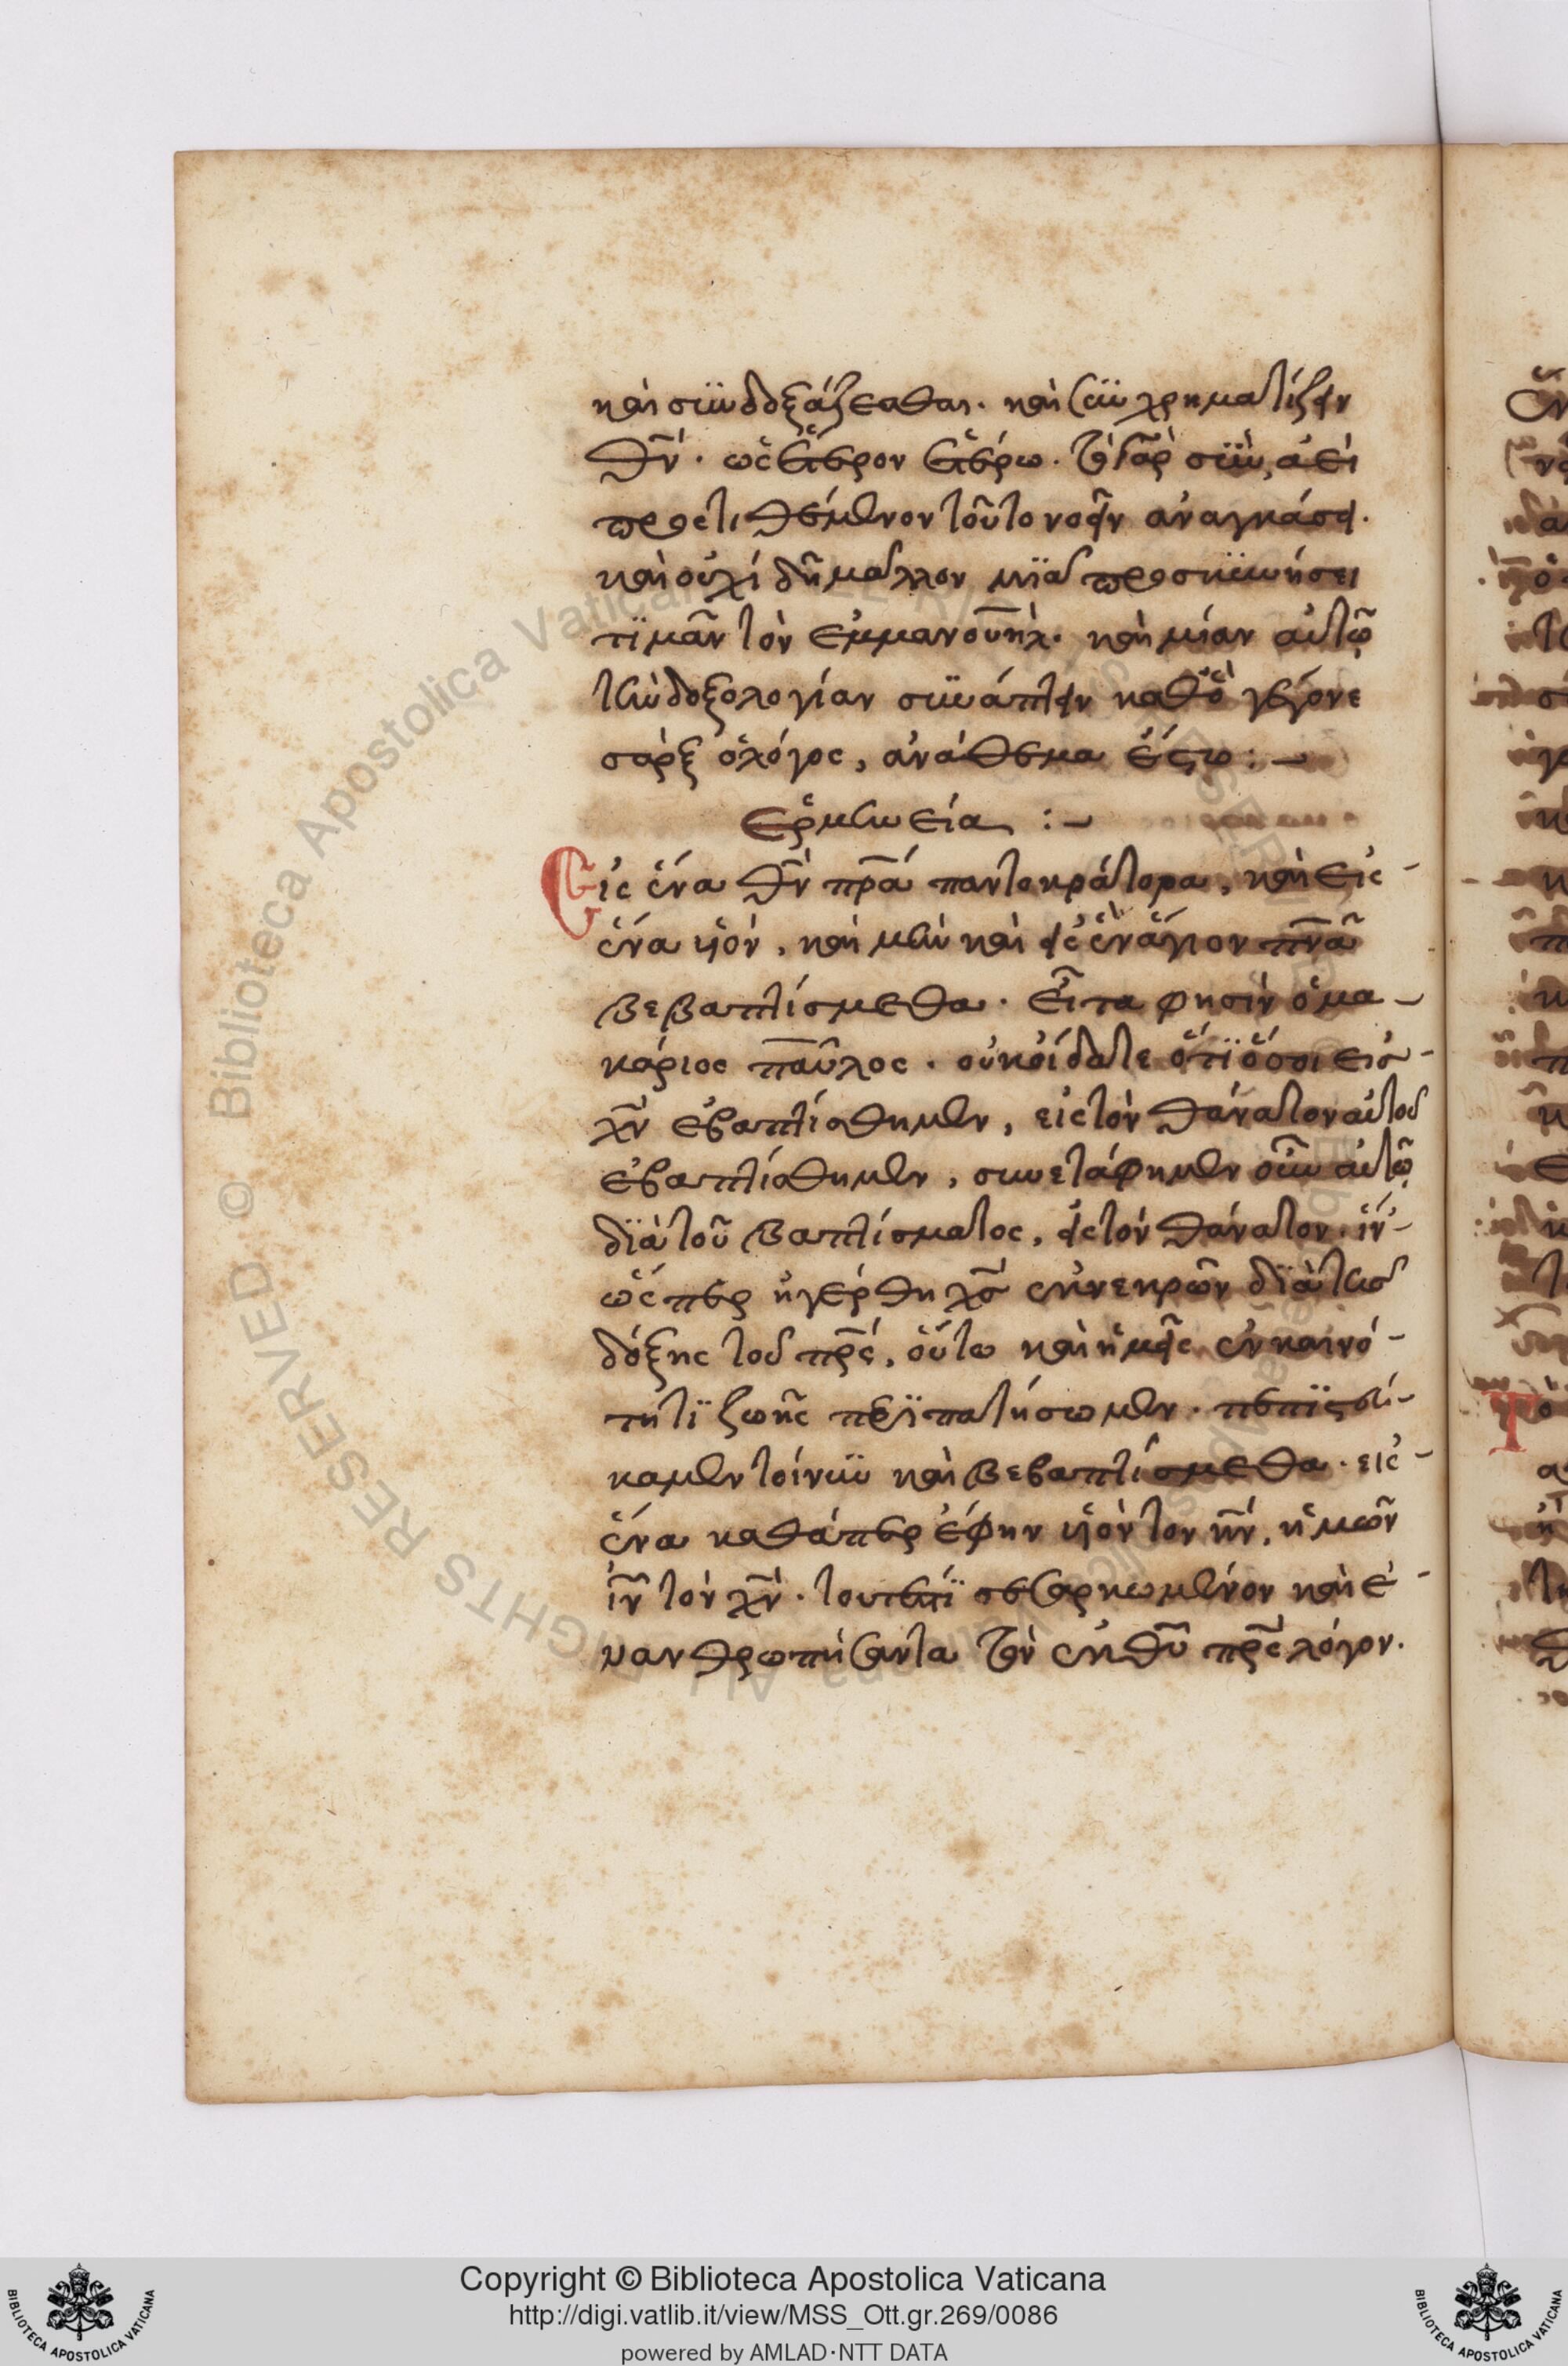 καὶ συνδοξάζεσθαι. καὶ συγχρηματίζειν
θν̄. ὡς ἕτερον ἑτέρω. τὸ γὰρ σὺν, ἀεὶ
προστιθέμενον τοῦτο νοεῖν ἀναγκάσει.
καὶ οὐχὶ δὴ μαλλον μιᾶ προσκυνήσει
τιμᾶν τὸν ἐμμανουὴλ. καὶ μίαν αὐτῶ
τὴν δοξολογίαν συνάπτειν καθὸ γέγονε
σὰρξ ὁ λόγος, ἀνάθεμα ἔστω :-
Ἑρμηνεία :-
Εἰς ἕνα θν̄ πρ̄α παντοκράτορα, καὶ εἰς
ἕνα υἱὸν, καὶ μὴν καὶ εἰς ἓν ἅγιον πν̄α
βεβαπτίσμεθα. εἶτα φησὶν ὁ μα-
κάριος παῦλος. οὐκ οἴδατε ὅτι ὅσοι εἰσ
χν̄ ἐβαπτίσθημεν, εἰς τὸν θάνατον αὐτοῦ
ἐβαπτίσθημεν, συνετάφημεν οὖν αὐτῶ
διὰ τοῦ βαπτίσματος, εἰς τὸν θάνατον. ἵν'
ὥσπερ ἠγέρθη χσ̄ ἐκ νεκρῶν διὰ τῆσ
δόξης τοῦ πρ̄ς, οὕτω καὶ ἡμεῖς ἐν καινό-
τητι ζωῆς περιπατήσωμεν. πεπιστεύ-
καμεν τοίνυν καὶ βεβαπτίσμεθα. εἰς
ἕνα καθάπερ ἔφην υἱὸν τὸν κν̄, ἡμῶν
ἰν̄ τὸν χν̄. τουτέστι σεσαρκωμένον καὶ ἐ-
νανθρωπήσαντα τὸν ἐκ θῡ πρ̄ς λόγον.
Copyright © Biblioteca Apostolica Vaticana
http://digi.vatlib.it/view/MSS_Ott.gr.269/0086
powered by AMLAD·NTT DATA